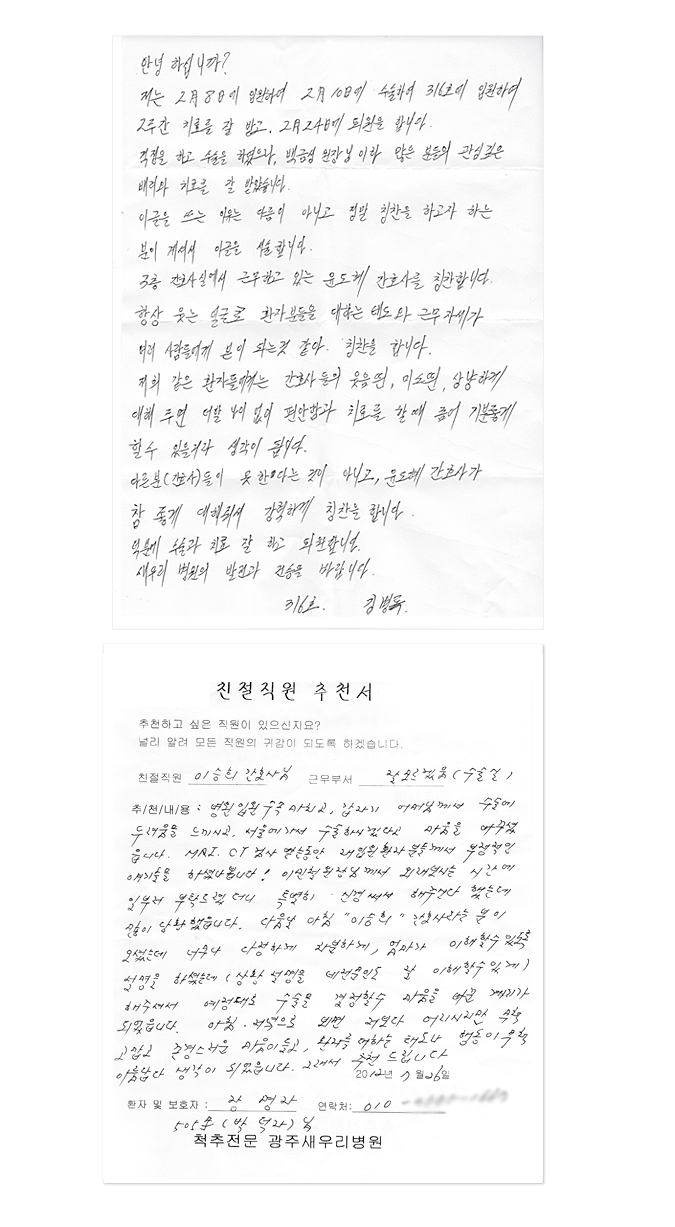 안녕 하십니까?
저는 2月 8日에 입원하여 2月 10日에 수술하여 316호에 입원하여
2주간 치료를 잘 받고, 2月 24日에 퇴원을 합니다.
걱정을 하고 수술을 하였으나, 백금성 원장님 이하 많은 분들의 관심깊은
배려와 치료를 잘 받았습니다.
이글을 쓰는 이유는 다름이 아니고 정말 칭찬을 하고자 하는
분이 계셔서 이글을 서술합니다.
3층 간호사실에서 근무하고 있는 윤도혜 간호사를 칭찬합니다.
항상 웃는 얼굴로 환자분들을 대하는 태도와 근무자세가
여러 사람들에게 본이 되는것 같아. 칭찬을 합니다.
저희 같은 환자들에게는 간호사들의 웃음띤, 미소띤, 상냥하게
대해 주면 더할 나위 없이 편안함과 치료를 할때 좀더 기분좋게
할수 있을거라 생각이 됩니다.
다른분(간호사)들이 못한다는 것이 아니고, 윤도혜 간호사가
참 좋게 대해줘서 강력하게 칭찬을 합니다.
덕분에 수술과 치료 잘 하고 퇴원합니다.
새우리 병원의 발전과 건승을 바랍니다.
316호. 김병
친절직원 추천서
추천하고 싶은 직원이 있으신지요?
널리 알려 모든 직원의 귀감이 되도록 하겠습니다.
친절직원 이승희 간호사님 근무부서 잘모르겠음(수술실)
추/천/내/용 : 병원입원수속 마치고, 갑자기 어머님께서 수술에
두려움을 느끼시고, 서울에가서 수술하시겠다고 마음을 바꾸셨
읍니다. MRI. CT 검사 받는동안 재입원환자분들께서 부정적인
얘기들을 하셨나봅니다! 이민철원장님께서 외래보시는 시간에
일부러 부탁드렸더니 특별히 신경써서 해주신다 했는데
많이 당황했습니다. 다음날 아침 "이승희" 간호사라는 분이
오셨는데 너무나 다정하게 차분하게, 엄마가 이해할수있도록
설명을 하셨는데 (상황설명을 잘 이해할수있게)
해주셔서 예정대로 수술을 결정할수 마음을 바꾼 계기가
되었읍니다. 아침.저녁으로 뵈면 저보다 어리시지만 무척
고맙고 존경스러운 마음이들고, 환자를대하는 태도나 행동이무척
아름답다 생각이 되었읍니다. 그래서 추천 드립니다
2012년 7월 26일
환자 및 보호자 : 강 명자 연락처: 010
505호 (박 덕자)님
척추전문 광주새우리병원